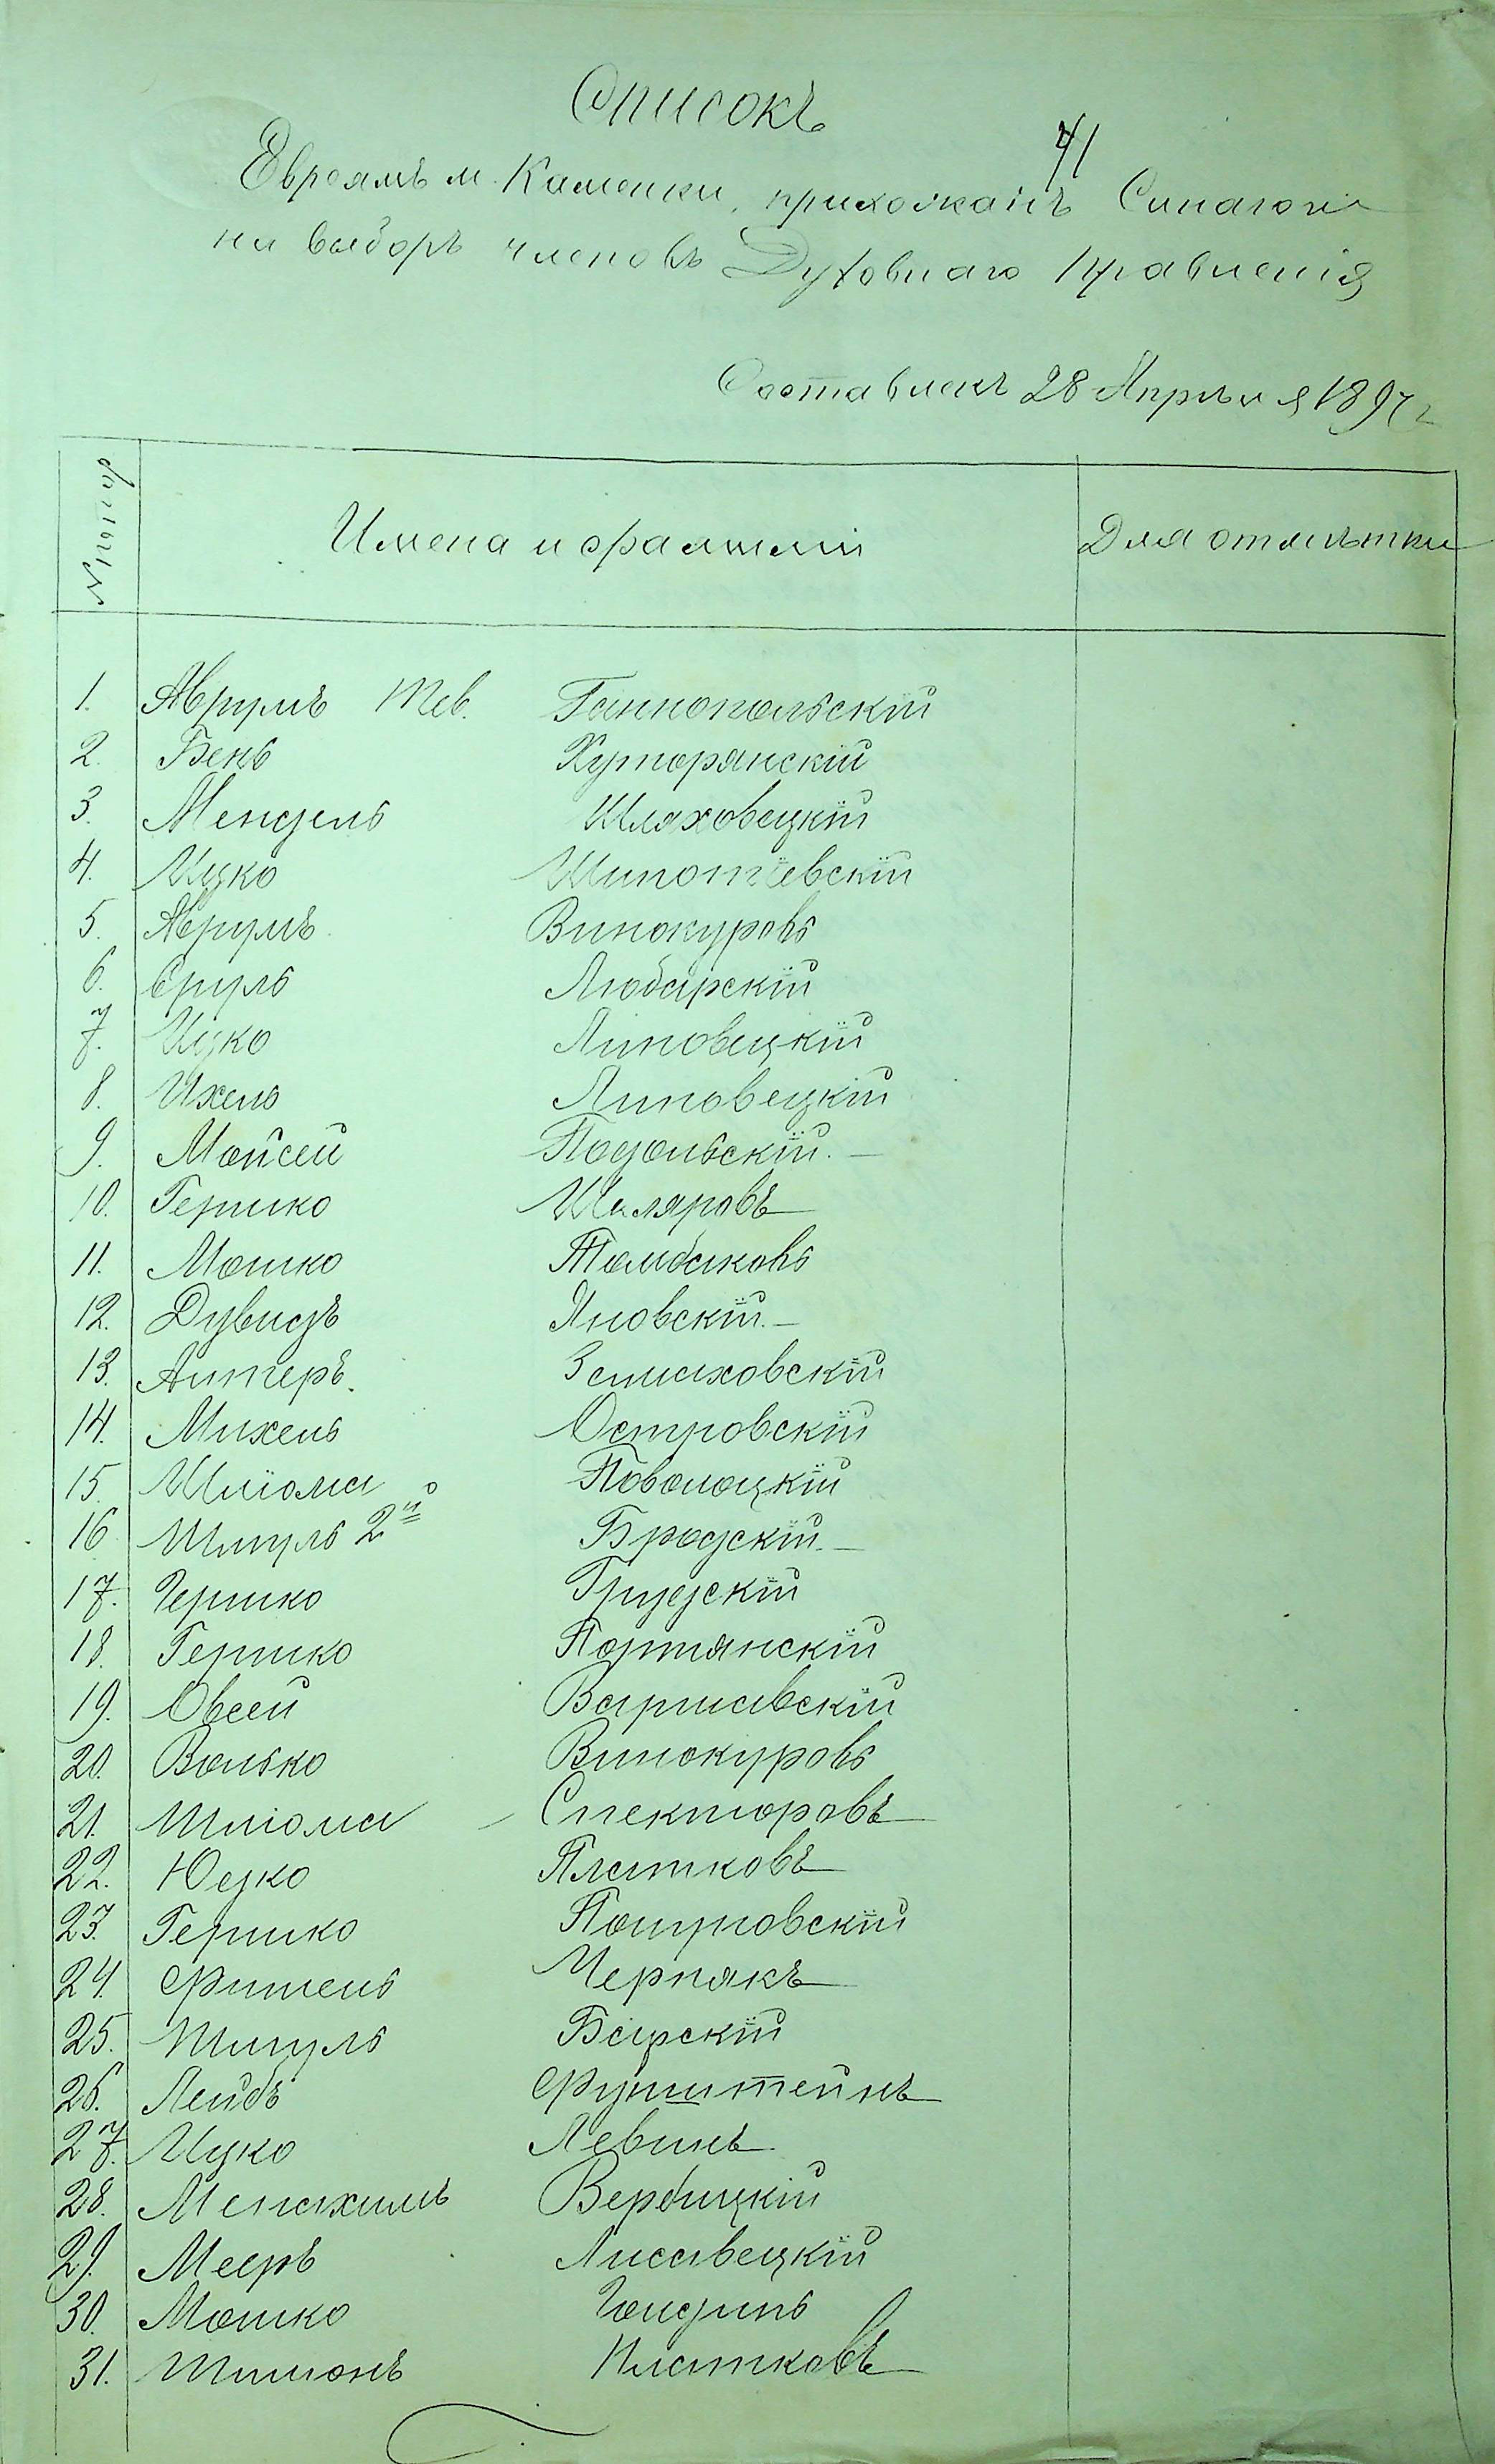 Списокъ
41
Евреямъ м. Каменки, прихожанъ Синагоги
на выборъ членовъ Духовнаго Правленія
Составленъ 28 Апрѣля 1897 г
№ по пор
Имена и фамиліи
Для отмѣтки
1. Аврумъ Тев. Ганнопольскій
2. Бень Хуторянскій
3. Мендель Шляховецкій
4. Ицко
5. Аврумъ Винокуровъ
6. Сруль Любарскій
7. Ицко Липовецкій
8. Ихель Липовецкій
9. Мойсей Подольскій.
10. Гершко Шкляровъ
11. Мошко Томбаковъ
12. Дувидъ Яновскій.
13. Алтеръ. Земиховскій
14. Михель Островскій
15. Шліома Поволоцкій
16 Шмуль 2й Бродскій.
17. Гершко Груздскій
18. Гершко Портянскій
19. Овсей Варшавскій
20. Волько Винокуровъ
21. Шліома Спекторовъ
22. Юдко Плитковъ
23. Гершко
24. Фишель Чернякъ
25. Шмуль Барскій
26. Лейбъ
27. Ицко Левинъ
28. Менахимъ Вербицкій
29. Мееръ Лисавецкій
30. Мошко Гольдинъ
31. Шимонъ Плитковъ